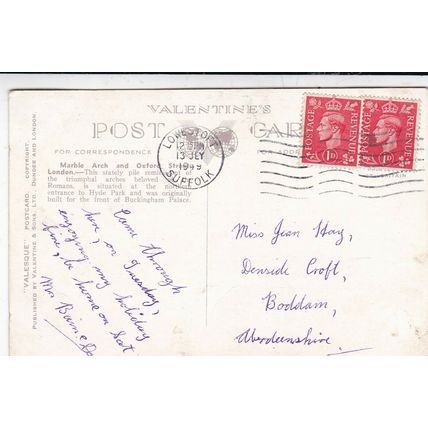 VALENTINE'S
POST CARD
FOR CORRESPONDENCE
FOR ADD
Marble Arch and Oxford Street,
London.—This stately pile reminiscent of
the triumphal arches beloved of the
Romans, is situated at the northern
entrance to Hyde Park and was originally
built for the front of Buckingham Palace.
"VALESQUE" POSTCARD. COPYRIGHT.
PUBLISHED BY VALENTINE & SONS, LTD. DUNDEE AND LONDON.
LOWESTOFT
13 JLY
1949
SUFFOLK
POSTAGE REVENUE
1D
POSTAGE REVENUE
1D
BRITAIN
Came through
here, on Tuesday,
enjoying my holiday
fine, be home on Sat
Mrs
Miss Jean Hay,
Denside Croft,
Boddam,
Aberdeenshire